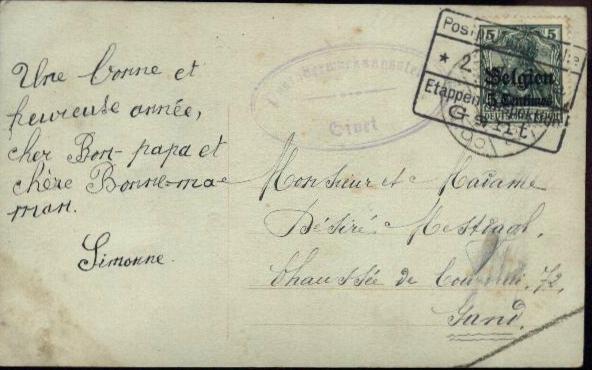 Une bonne et
heureuse année,
cher Bon-papa et
chère Bonne-ma-
man.
Simonne.
Givet
Post
* 2
Etappen
Gent.
5 5
Belgien
5 Centimes
Monsieur et Madame
Désiré Mestdagh,
Chaussée de Courtrai, 72,
Gand.